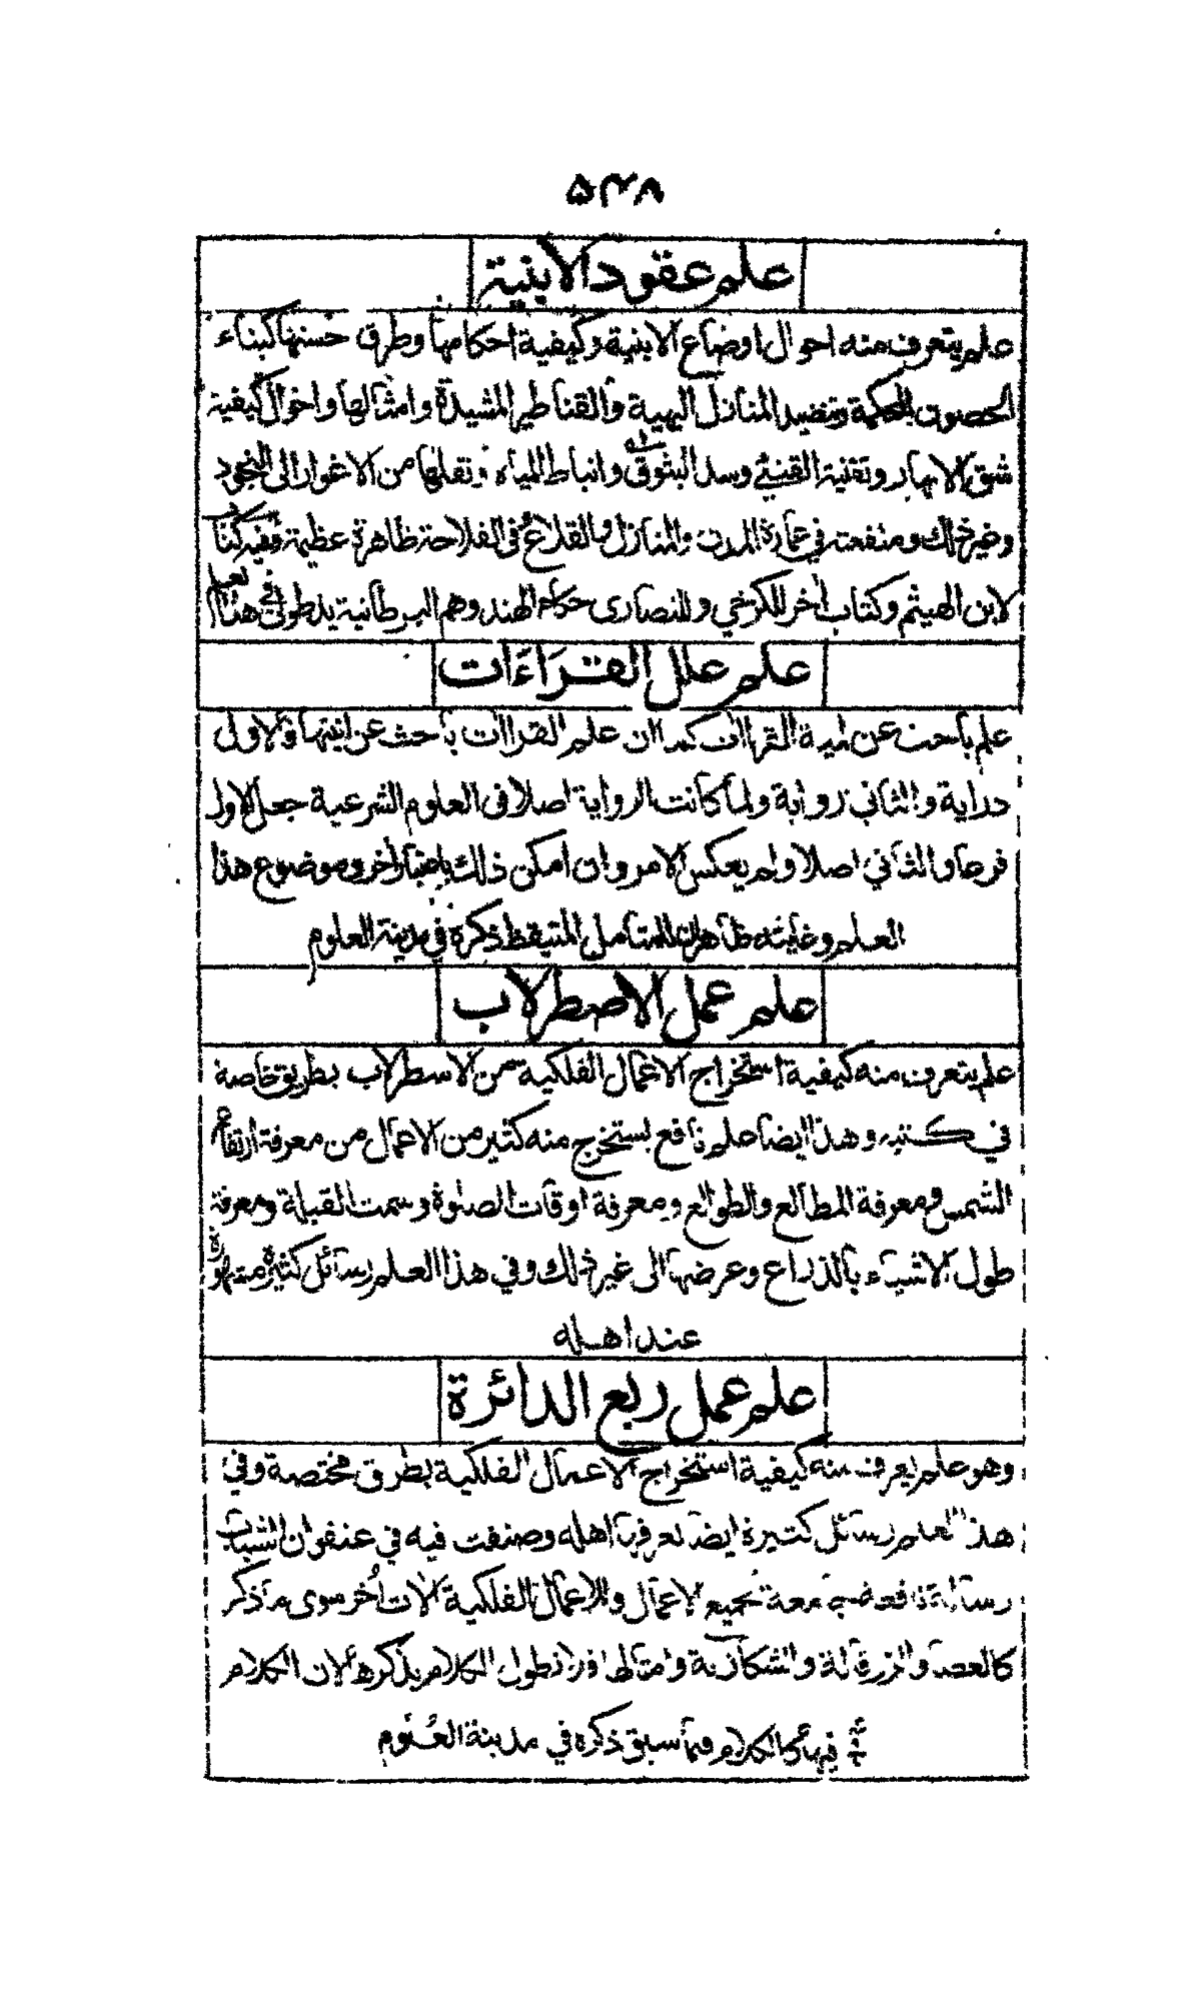 ۵۳۸
علم عقود الابنية
علم يتعرف منه احوال اوضاع الابنية وكيفية احكامها وطرق حسنها كبناء
الحصون المحكمة وتنضيد المنازل البهية والقناطير المشيدة وامثالها واحوال كيفية
شق الانهار وتقنية القنى وسد البثوق وانباط المياه ونقلها من الاغوار الى النجود
وغير ذلك ومنفعته في عمارة المدن والمنازل والقلاع فى الفلاحة ظاهرة عظيمة وفيه كتاب
لابن الهيثم وكتاب اخر للكرخي وللنصارى حكام الهند وهم البرطانية يد طولى في هذا العلم
علم علل القراءات
علم باحث عن لمية القراآت كما ان علم القراآت باحث عن انيتها والاول
دراية والثاني رواية ولما كانت الرواية اصلا فى العلوم الشرعية جعل الاول
فرعا والثاني اصلا ولم يعكس الامر وان امكن ذلك باعتبار اخر وموضوع هذا
العلم وغايته ظاهران للمتامل المتيقظ ذكره في مدينة العلوم
علم عمل الاصطرلاب
علم يتعرف منه كيفية استخراج الاعمال الفلكية من الاسطرلاب بطريق خاصة
في كتبه وهذا ايضا علم نافع يستخرج منه كثير من الاعمال من معرفة ارتفاع
الشمس ومعرفة المطالع والطوالع ومعرفة اوقات الصلوة وسمت القبلة ومعرفة
طول الاشياء بالذراع وعرضها الى غير ذلك وفي هذا العلم رسائل كثيرة مشهورة
عند اهله
علم عمل ربع الدائرة
وهو علم يعرف منه كيفية استخراج الاعمال الفلكية بطرق مختصة وفي
هذا العلم رسائل كثيرة ايضا يعرفها اهله وصنفت فيه في عنفوان الشباب
رسالة نافعة جامعة لجميع الاعمال وللاعمال الفلكية آلات أخر سوى ما ذكر
كالعصا والزرقالة والشكازية وامثالها ولا نطول الكلام بذكرها لان الكلام
فيها كالكلام فيما سبق ذكره في مدينة العلوم